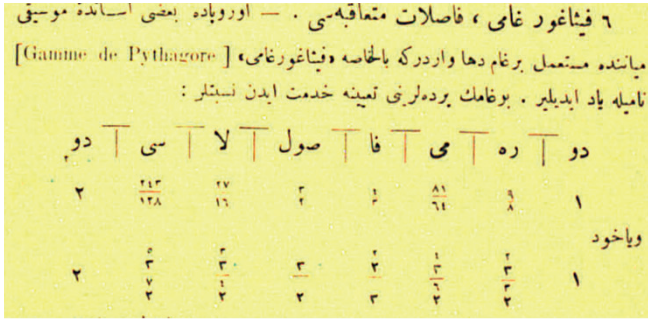 ٦ فيثاغور غامی ، فاصلات متعاقبه‌سی . — اوروپاده بعضی اساتذهٔ موسيقی
میاننده مستعمل برغام دها واردركه بالخاصه «فيثاغورغامی» [Gamme de Pythagore]
ناميله ياد ايديلير . بوغامك پرده‌لرنی تعيينه خدمت ايدن نسبتلر :
دو ره می فا صول لا سی دو
١ ٩/٨ ٨١/٦٤ ٤/٣ ٣/٢ ٢٧/١٦ ٢٤٣/١٢٨ ٢
وياخود
١ ٣٢/٢٣ ٣٤/٢٦ ٢٢/٣ ٣/٢ ٣٣/٢٤ ٣٥/٢٧ ٢